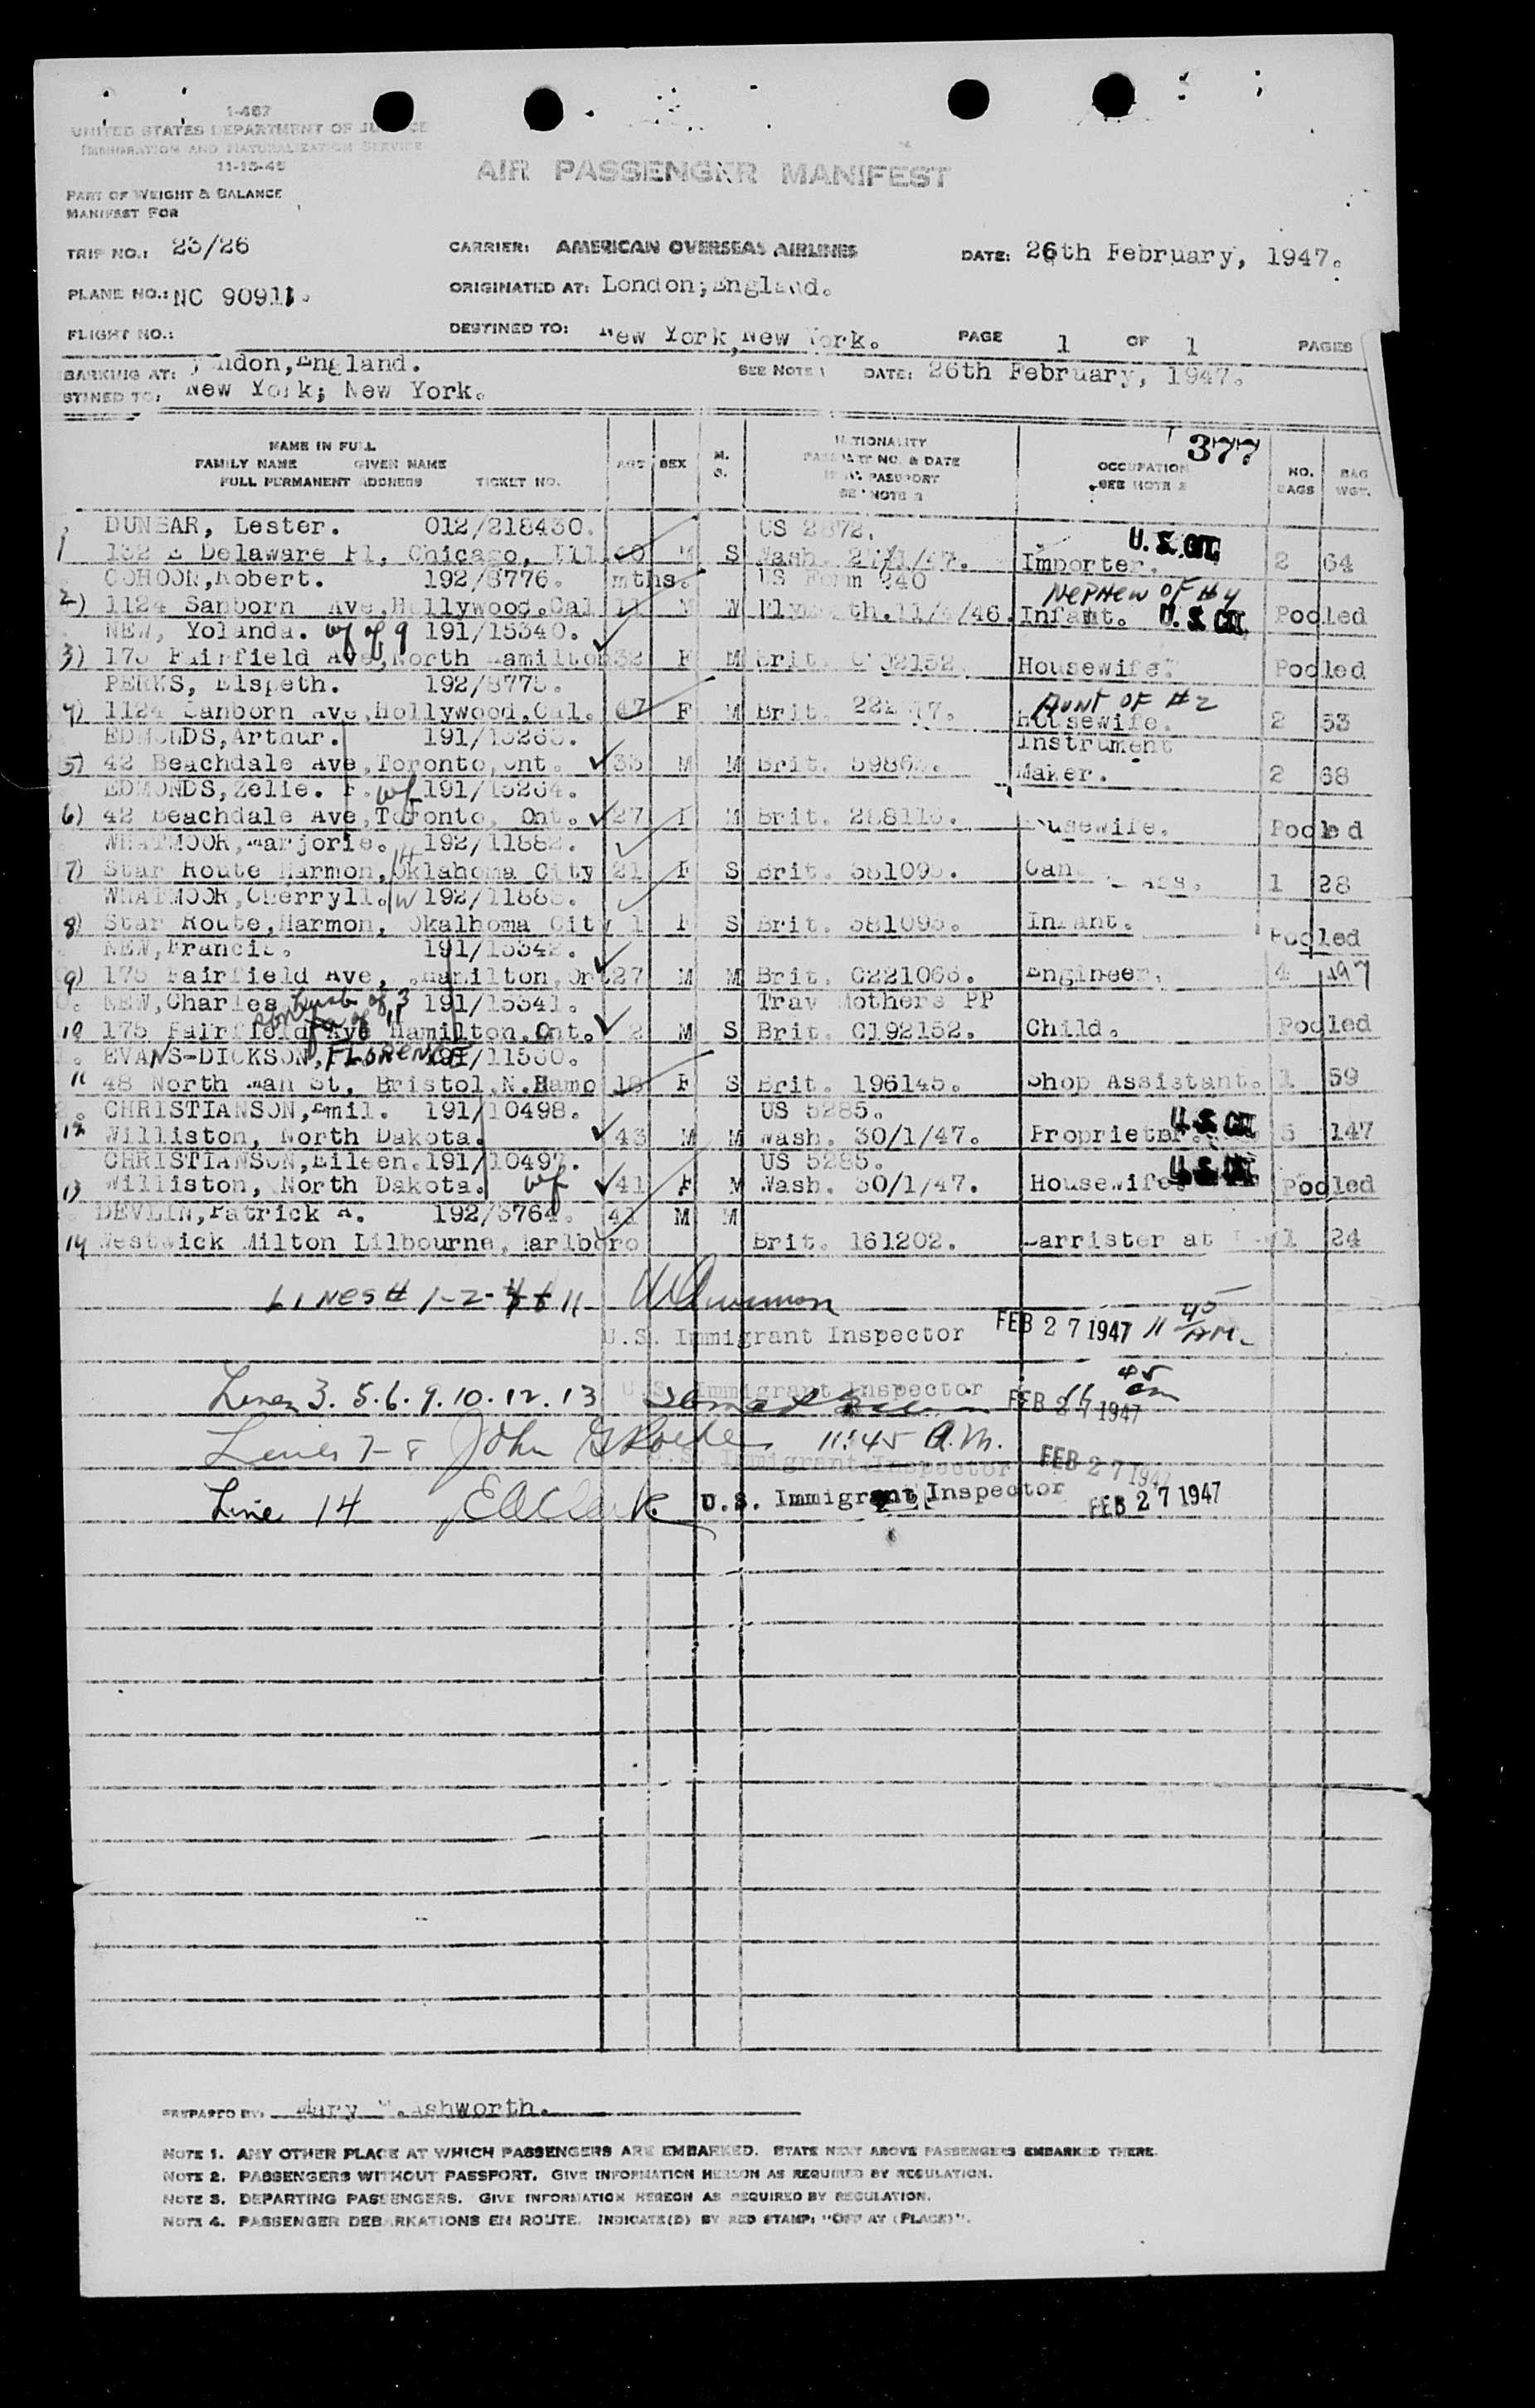 1-467
UNITED STATES DEPARTMENT OF JUSTICE
IMMIGRATION AND NATURALIZATION SERVICE
11-15-45
AIR PASSENGER MANIFEST
PART OF WEIGHT & BALANCE
MANIFEST FOR
TRIP NO.: 25/26 CARRIER: AMERICAN OVERSEAS AIRLINES DATE: 26th February, 1947.
PLANE NO.: NC 90911. ORIGINATED AT: London, England.
FLIGHT NO.: DESTINED TO: New York, New York. PAGE 1 OF 1 PAGES
BARKING AT: London, England. SEE NOTE 1 DATE: 26th February, 1947.
STINED TO: New York; New York.
377
NAME IN FULL
FAMILY NAME GIVEN NAME
FULL PERMANENT ADDRESS TICKET NO. AGE SEX M. S. NATIONALITY PASSPORT NO. & DATE OCCUPATION SEE NOTE 2 NO. BAGS BAG WGT.
DUNBAR, Lester. 012/218430. US 2872.
1 132 E Delaware Pl, Chicago, Ill 40 M S Wash. /1/47. Importer. U.S. CIT. 2 64
COHOON, Robert. 192/8776. mths. US Form 240 NEPHEW OF #4
2) 1124 Sanborn Ave, Hollywood. Cal 11 M Plymouth. 11/ /46. Infant. U.S. CIT. Pooled
NEW, Yolanda. wf of 9 191/15340.
3) 175 Fairfield Ave, North Hamilton 32 F M Brit. Housewife. Pooled
PERKS, Elspeth. 192/8775.
4) 1124 Sanborn Ave, Hollywood, Cal. 47 F M Brit. AUNT OF #2 Housewife. 2 53
EDMONDS, Arthur. 191/15263. Instrument
5) 42 Beachdale Ave, Toronto, Ont. 33 M M Brit. Maker. 2 68
EDMONDS, Zelie. F. wf 191/15264.
6) 42 Beachdale Ave, Toronto, Ont. 27 F M Brit. Housewife. Pooled
WHATMOOR, Marjorie. 192/11882.
7) Star Route Harmon, Oklahoma City 21 F S Brit. 381095. 1 28
WHATMOOR, Cherryll. 192/11883.
8) Star Route, Harmon, Okalhoma City 1 F S Brit. 381095. Infant. Pooled
NEW, Francis. 191/15342.
9) 175 Fairfield Ave, Hamilton, Ont 27 M M Brit. C221066. Engineer. 4 197
husb of 3
NEW, Charles 191/15341. Trav Mothers PP
10 175 Fairfield Ave Hamilton, Ont. 2 M S Brit. C192152. Child. Pooled
EVANS-DICKSON, FLORENCE 191/11560.
11 48 North Man St, Bristol, N. Hamp 18 F S Brit. 196145. Shop Assistant. 1 59
CHRISTIANSON, Emil. 191/10498. US 5285.
12 Williston, North Dakota. 43 M M Wash. 30/1/47. Proprietor. U.S. CIT. 5 147
CHRISTIANSON, Eileen. 191/10497. US 5285.
13 Williston, North Dakota. wf 41 F M Wash. 30/1/47. Housewife. U.S. CIT. Pooled
DEVLIN, Patrick A. 192/3764. 41 M M
14 Westwick Milton Lilbourne, Marlboro Brit. 161202. Barrister at 1 24
LINES # 1-2-4 & 11
U.S. Immigrant Inspector FEB 27 1947 11 45 AM.
Lines 3. 5. 6. 9. 10. 12. 13 U.S. Immigrant Inspector FEB 27 1947 11 45 am
Lines 7-8 John 11:45 A.M. U.S. Immigrant Inspector FEB 27 1947
Line 14 E A Clark. U.S. Immigrant Inspector FEB 27 1947
PREPARED BY: Mary .Ashworth.
NOTE 1. ANY OTHER PLACE AT WHICH PASSENGERS ARE EMBARKED. STATE NEXT ABOVE PASSENGERS EMBARKED THERE.
NOTE 2. PASSENGERS WITHOUT PASSPORT. GIVE INFORMATION HEREON AS REQUIRED BY REGULATION.
NOTE 3. DEPARTING PASSENGERS. GIVE INFORMATION HEREON AS REQUIRED BY REGULATION.
NOTE 4. PASSENGER DEBARKATIONS EN ROUTE. INDICATE(D) BY RED STAMP: "OFF AT (PLACE)".